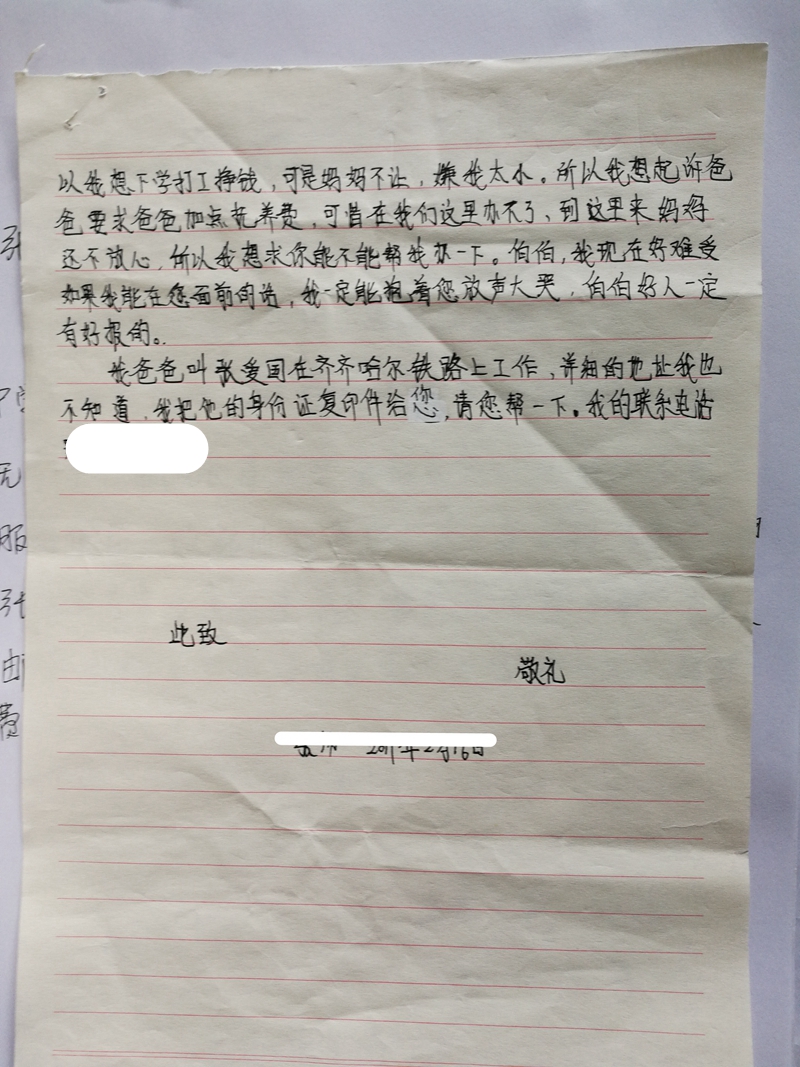 以我想下学打工挣钱，可是妈妈不让，嫌我太小。所以我想起诉爸
爸要求爸爸加点抚养费，可惜在我们这里办不了、到这里来妈妈
还不放心，所以我想求你能不能帮我办一下。伯伯，我现在好难受
如果我能在您面前的话，我一定能抱着您放声大哭，伯伯好人一定
有好报的。
我爸爸叫张爱国在齐齐哈尔铁路上工作，详细的地址我也
不知道，我把他的身份证复印件给您，请您帮一下。我的联系电话
此致
敬礼
年2月16日
无
服